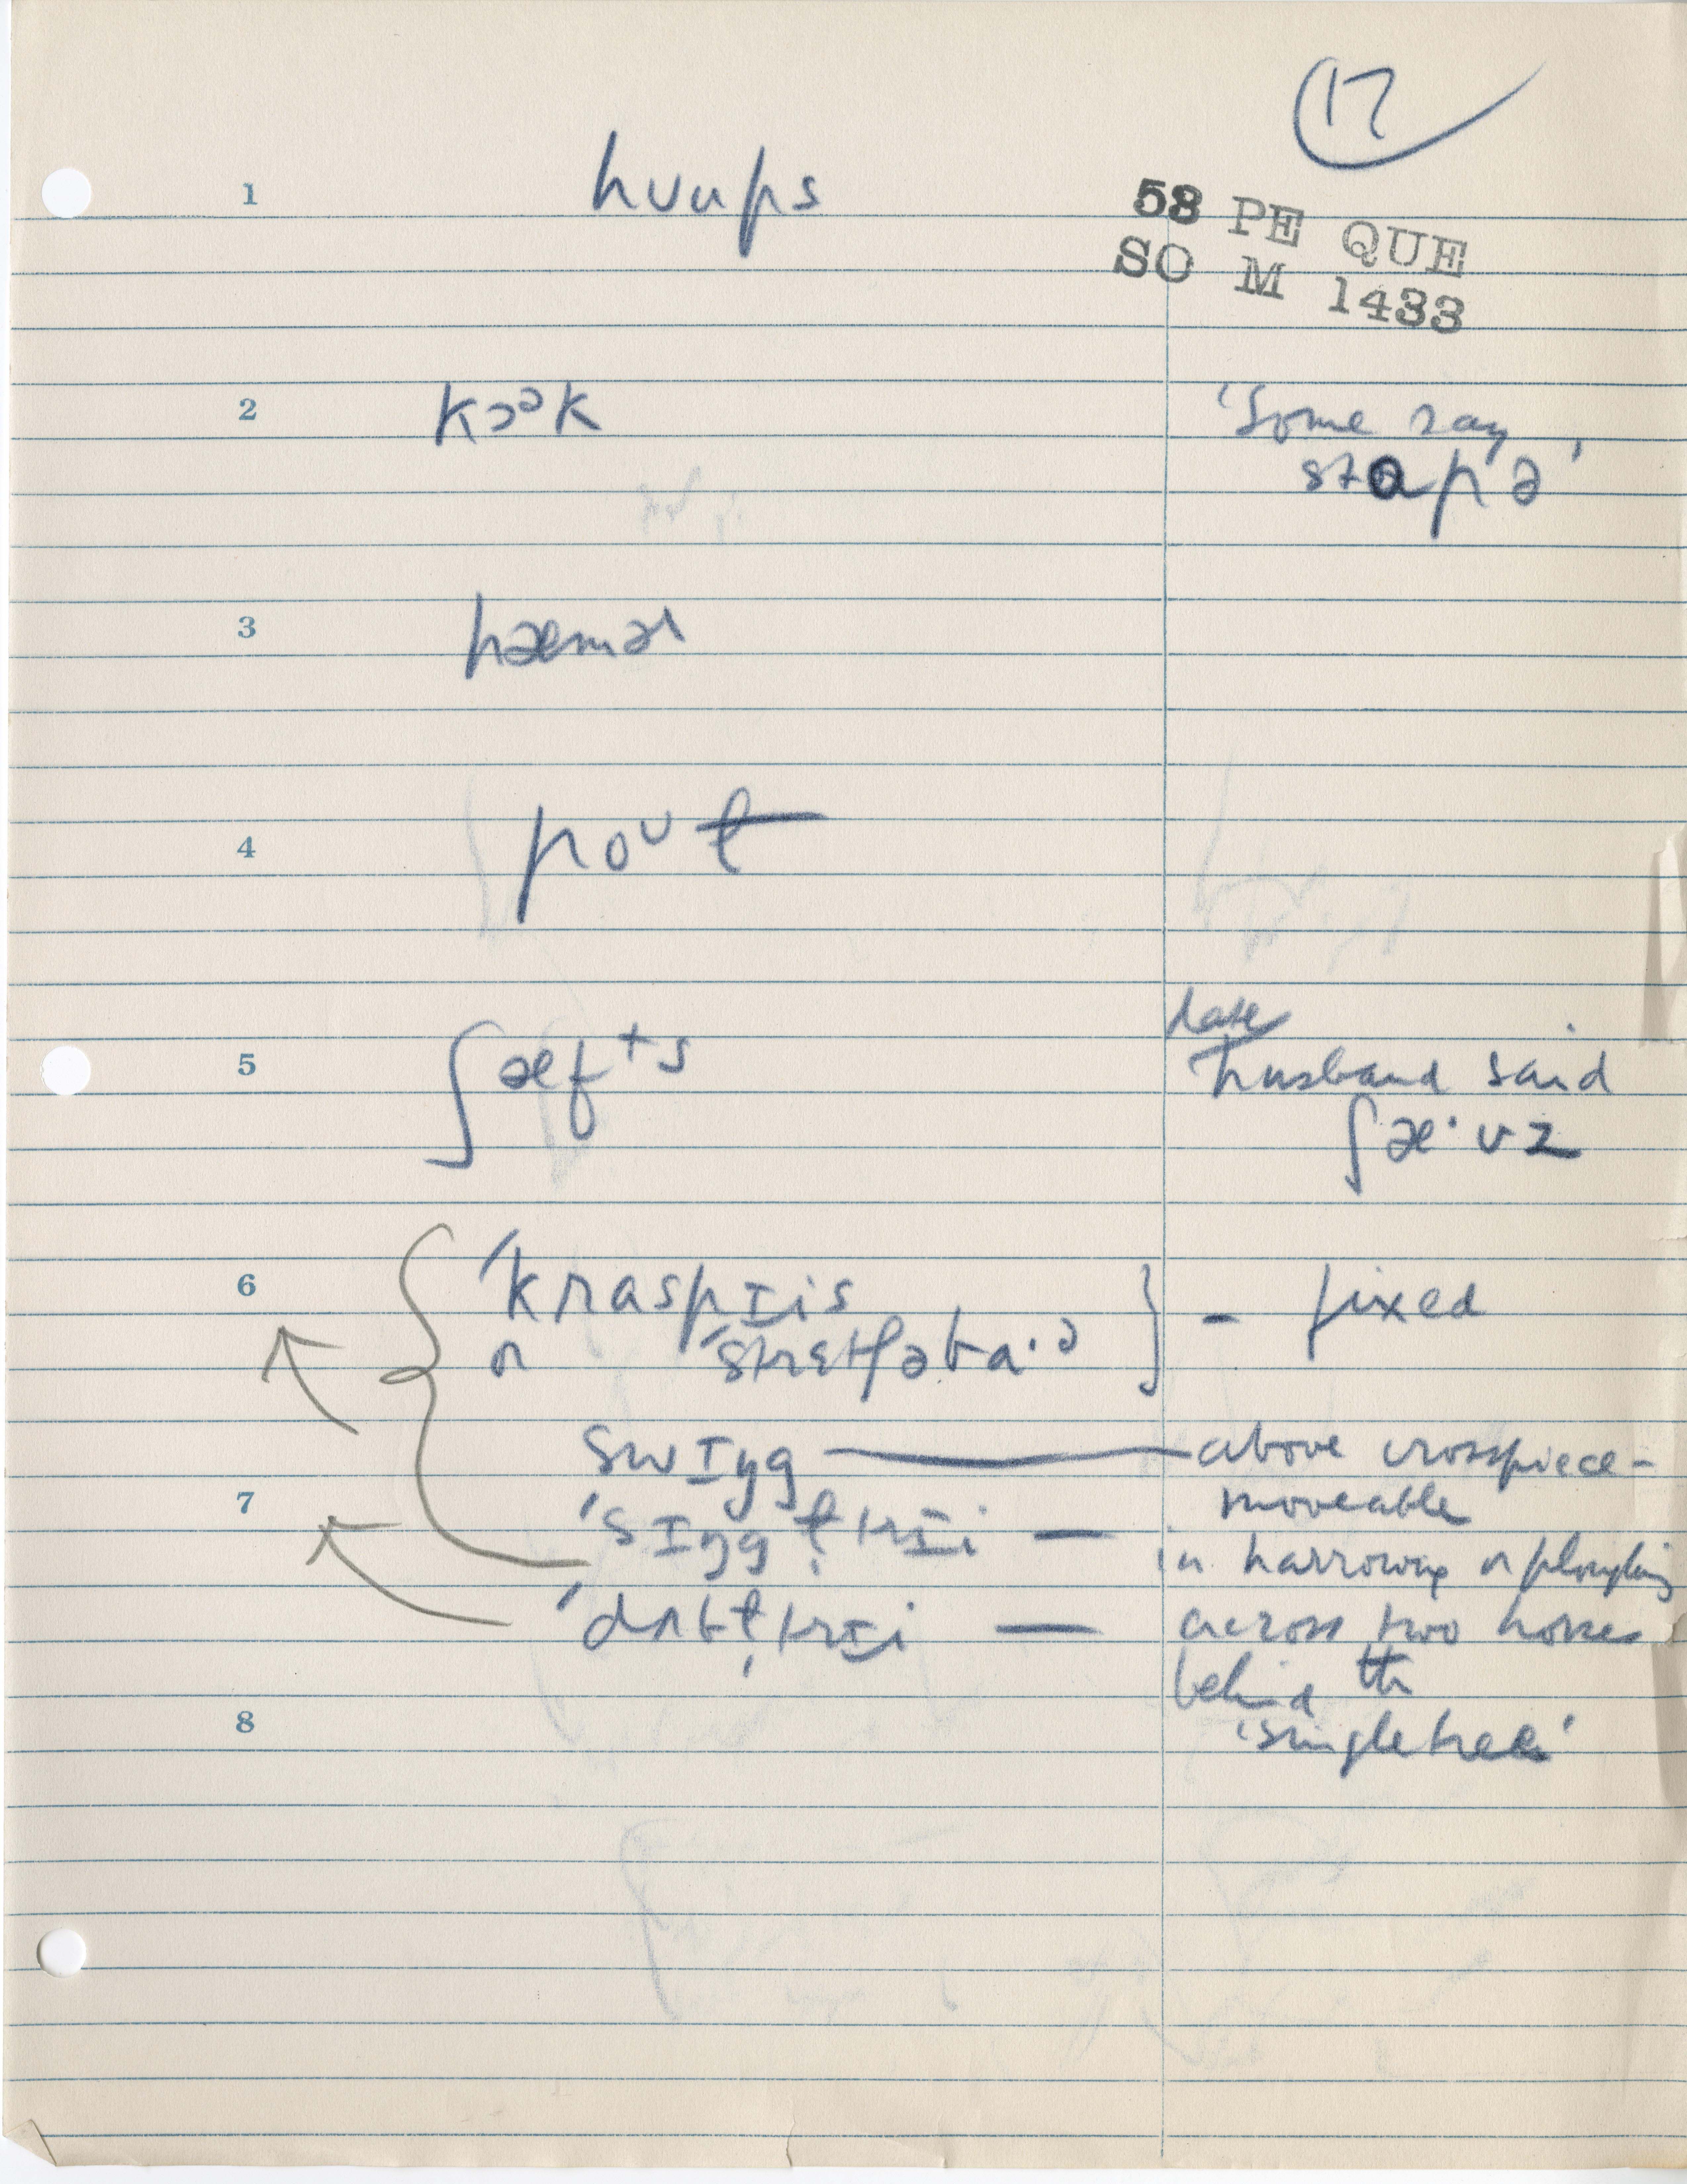 17
58 PE QUE
SO M 1433
1 hʊups
2 kɔᵊk 'some say
stɑpə'
3 hæmər
4 poᵘt
5 ʃæfᵗs late
husband said
ʃæ·vz
6 'kraspɪis } – fixed
or 'stretʃəba·ə
swɪŋg — above crosspiece –
moveable
7 'sɪŋgl̩trɪi — in harrowing or ploughing
'dʌbl̩trɪi — across two horses
behind the
8 'singletree'